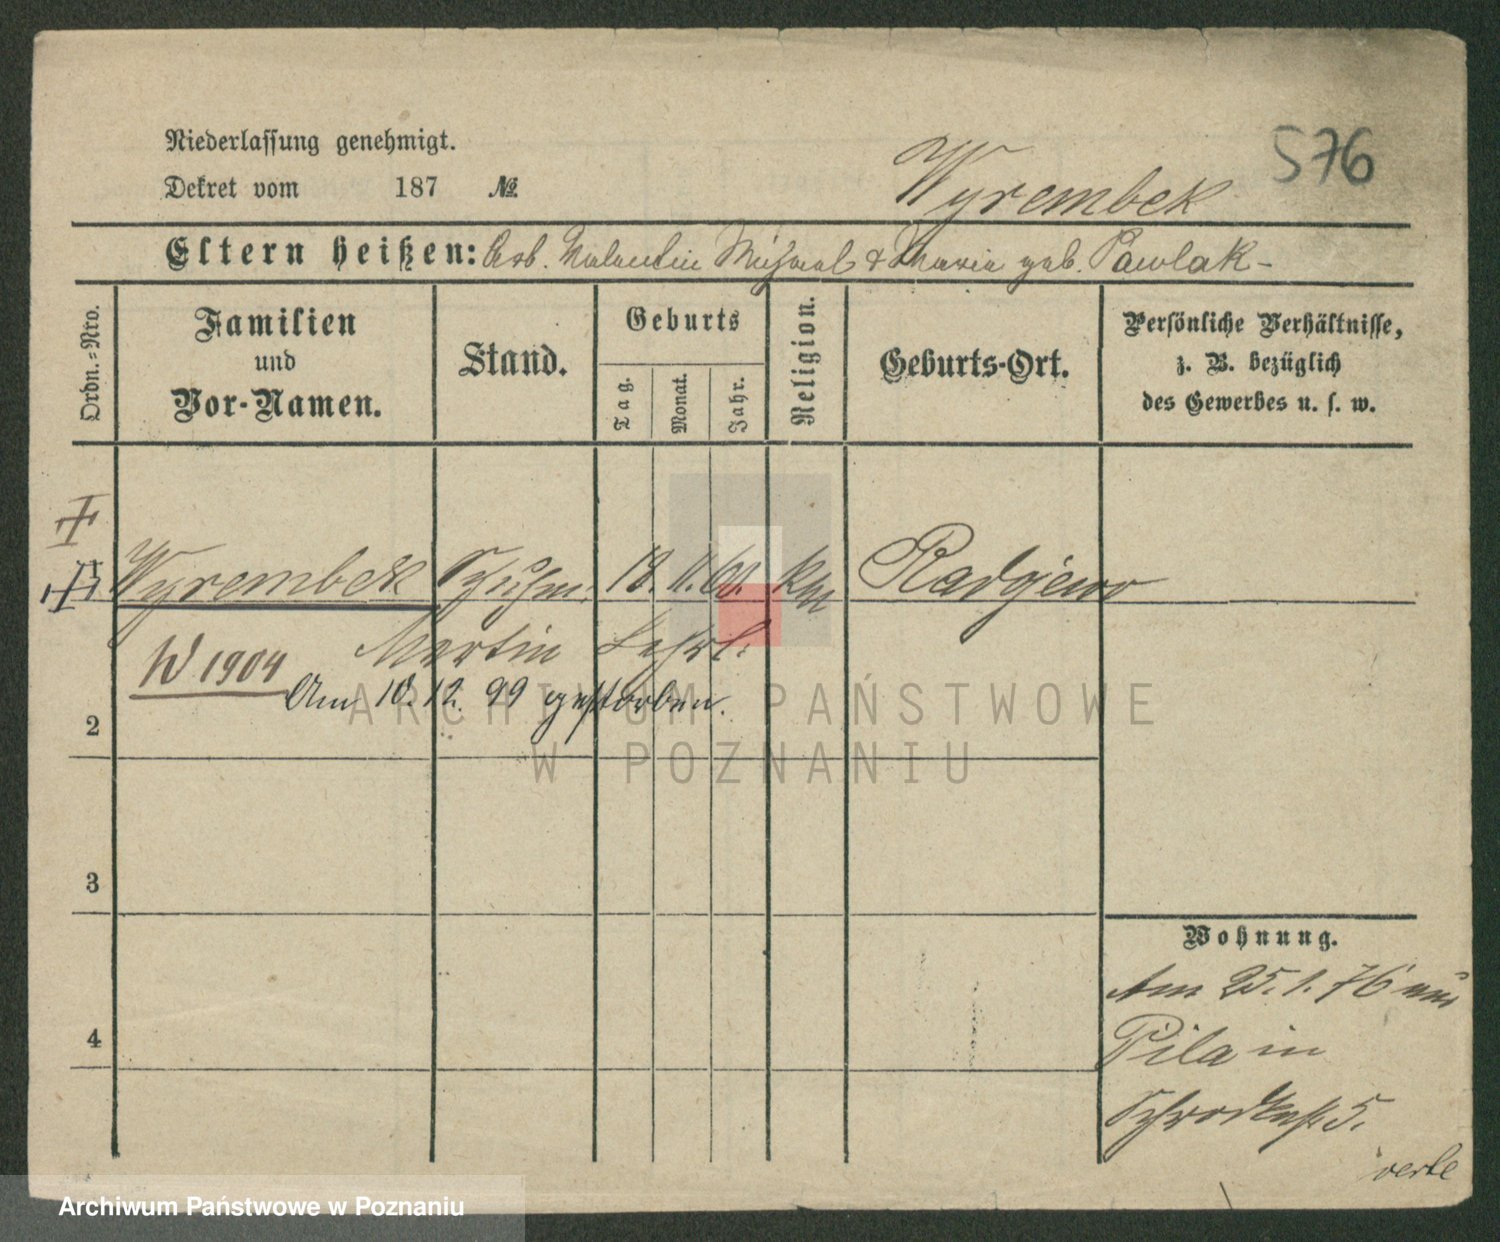 Niederlassung genehmigt.
576
Dekret vom 187 №
Wyrembek
Eltern heißen: Arb. Valentin Michael & Maria geb. Pawlak -
Ordn.-Nro.
Familien
und
Vor-Namen.
Stand.
Geburts
Tag.
Monat.
Jahr.
Religion.
Geburts-Ort.
Persönliche Verhältnisse,
z. B. bezüglich
des Gewerbes u. s. w.
1
Wyrembek Schuhm. 18. 11. 60. kath Radojewo
Martin Lehrl.
W 1904
Am 10. 12. 99 gestorben.
2
3
4
Wohnung.
Am 25. 1. 76 aus
Pila in
5.
verte
ARCHIWUM PAŃSTWOWE
W POZNANIU
Archiwum Państwowe w Poznaniu